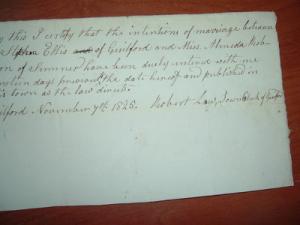 this I certify that the intentions of marriage between
Ellis of Guilford and Miss Almeda Rob-
of Sumner have been duly entered with me
days previous the date hereof and published in
town as the law directs.
November 7th 1828. Robert Law, Town Clerk of